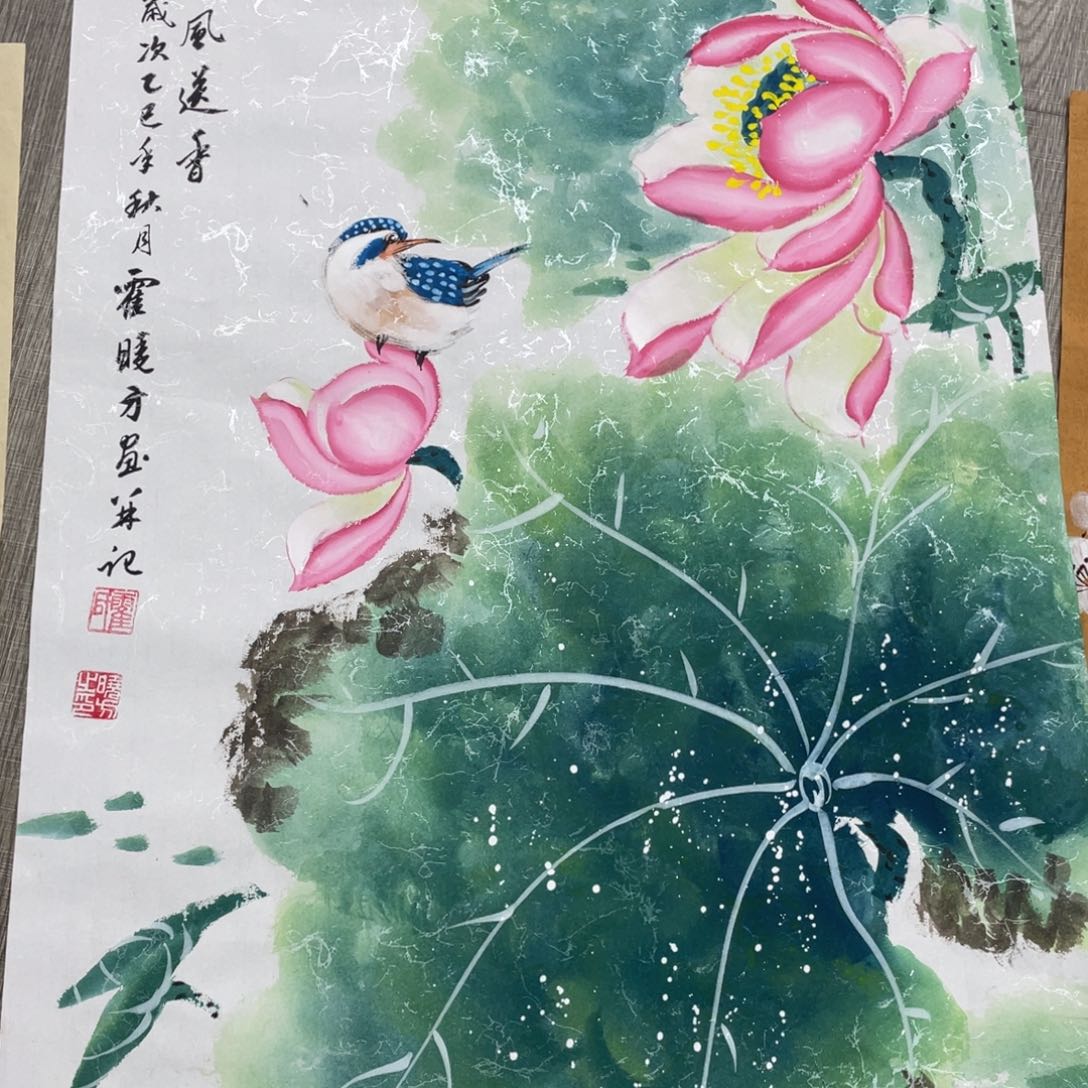 風送香
歲次乙巳年秋月霍曉方畫并记
霍印
曉方之印